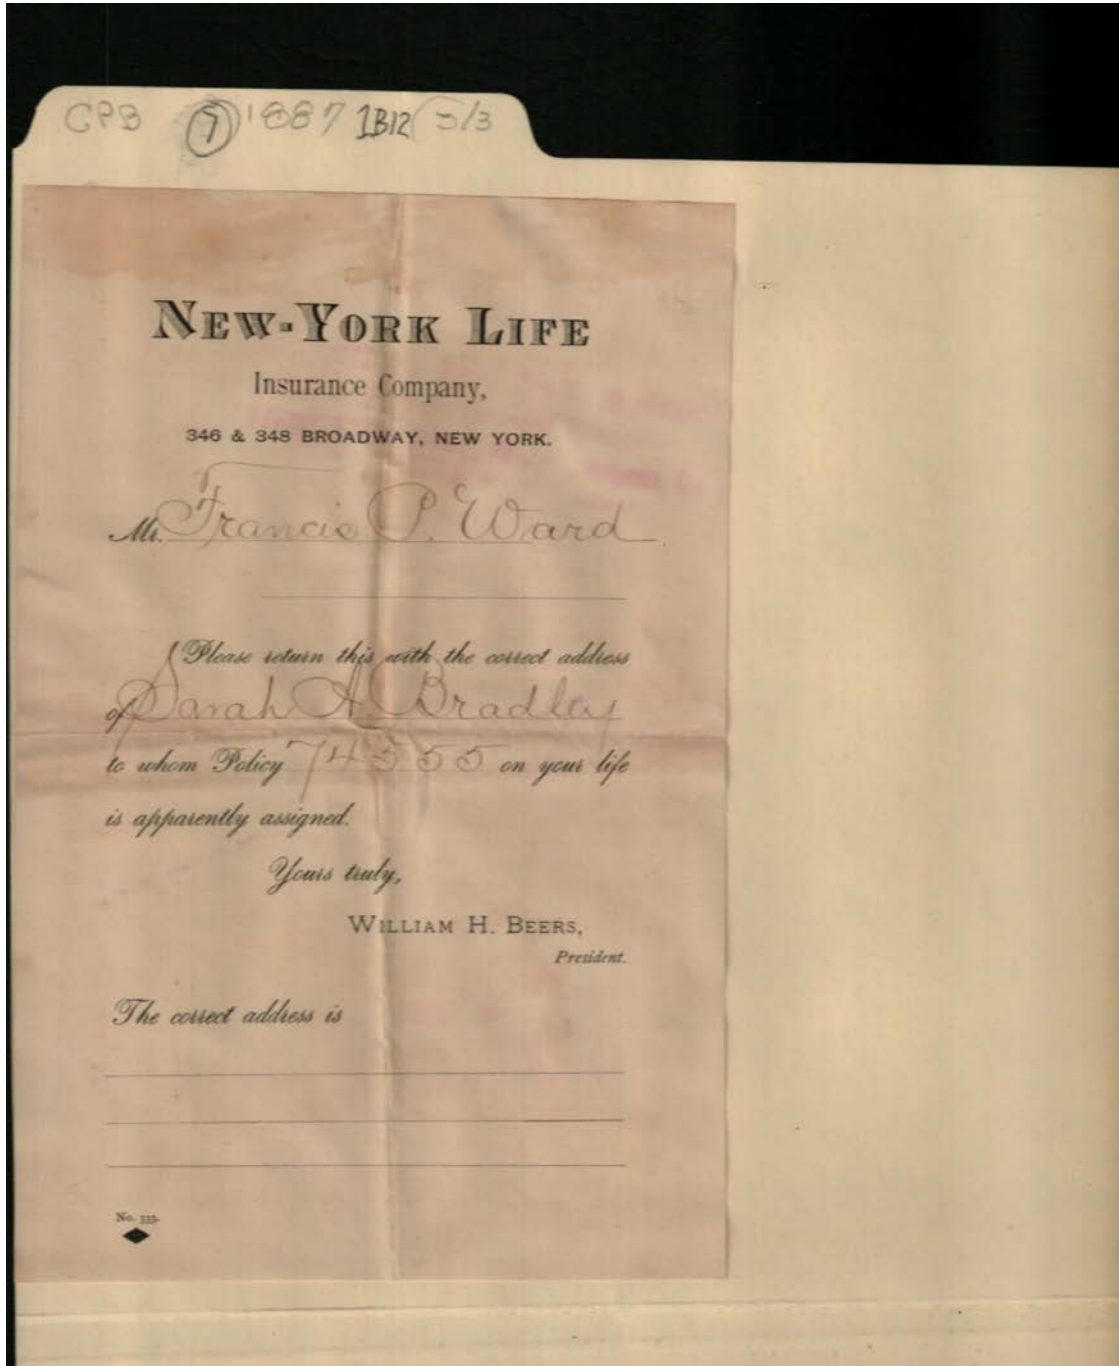 CPB 7 1887 1B12 5/3
NEW-YORK LIFE
Insurance Company,
346 & 348 BROADWAY, NEW YORK.
Mr. Francis P. Ward
Please return this with the correct address
of Sarah A. Bradley
to whom Policy 74355 on your life
is apparently assigned.
Yours truly,
WILLIAM H. BEERS,
President.
The correct address is
No.